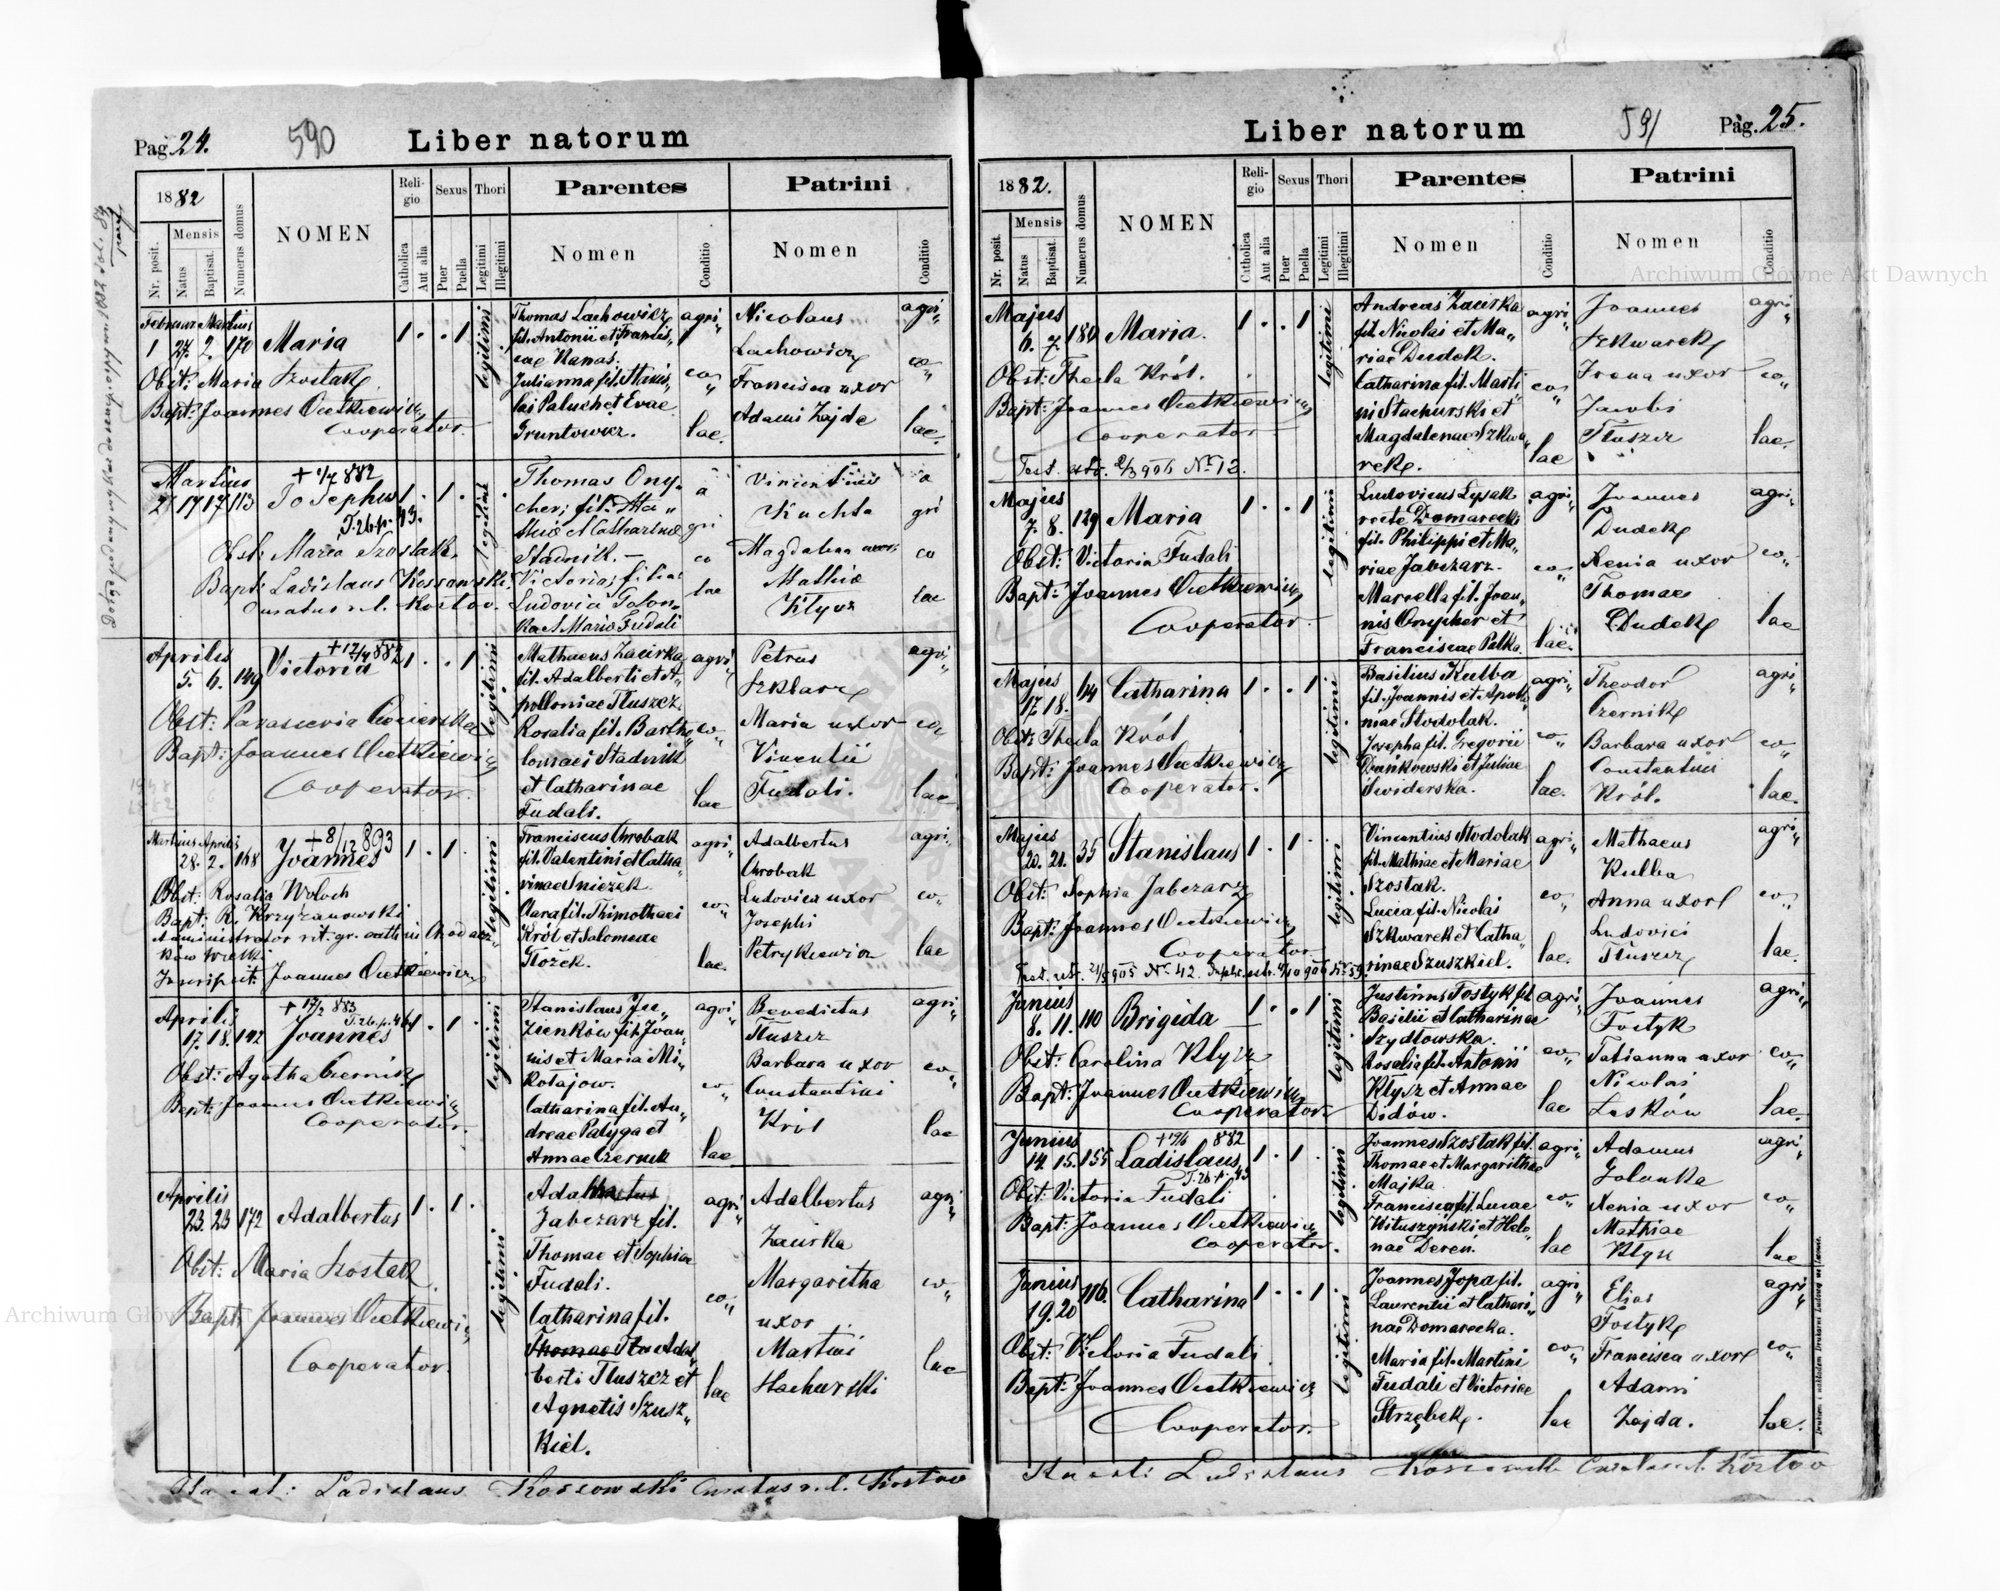 Pag. 24.
590
Liber natorum
1882
Mensis
Nr. posit.
Natus
Baptisat.
Numerus domus
NOMEN
Religio
Catholica
Aut alia
Sexus
Puer
Puella
Thori
Legitimi
Illegitimi
Parentes
Nomen
Conditio
Patrini
Nomen
Conditio
Februar Martius
1 27. 2. 170 Maria 1 . . 1 legitimi
Obst: Maria Szostak
Bapt: Joannes Cietkiewicz
Cooperator.
Thomas Lachowicz
fil. Antonii et Francis„
cae Kanas.
Julianna fil. Stanis„
lai Paluch et Evae
Gruntowicz.
agri„
co„
lae.
Nicolaus
Lachowicz
Francisca uxor
Adami Zajda
agri„
co„
lae.
Martius + 4/7 882
2 17 17 113 Josephus 1 . 1 . legitimi
T. 2b. p. 43.
Obst: Maria Szostak
Bapt: Ladislaus Kossowski
Curatus r. l. Kostow.
Thomas Ony„
cher, fil. Ma„
thiæ et Catharinæ
Stadnik. –
Victoria, filia
Ludovici Golon„
ka et Maria Fudali
a
gri
co
lae
Vincentius
Kuchta
Magdalena uxor
Mathiæ
Klysz
a
gri
co
lae
Aprilis + 12/4 882
5. 6. 149 Victoria 1 . . 1 legitimi
Obst: Parascevia
Bapt: Joannes Cietkiewicz
Cooperator.
Mathaeus Zacirka
fil. Adalberti et A„
polloniae Tluszcz.
Rosalia fil. Bartho„
lomaei Stadnik
et Catharinae
Fudali.
agri„
co„
lae
Petrus
Szklarz
Maria uxor
Vincentii
Fudali.
agri„
co„
lae.
Martius Aprilis + 8/12 893
28. 2. 168 Joannes 1 . 1 . legitimi
Obst: Rosalia Woloch
Bapt: R. Krzyżanowski
Administrator rit. gr. cath. in Chodacz„
kow wielki
Inscripsit: Joannes Cietkiewicz
Franciscus Chrobak
fil. Valentini et Catha„
rinae Snieżek.
Clara fil. Thimothaei
Król et Salomeae
Tłożek.
agri„
co„
lae.
Adalbertus
Chrobak
Ludovica uxor
Josephi
Petrykiewicz
agri„
co„
lae
Aprilis + 17/2 883
T. 2b. p. 46
17. 18. 142 Joannes 1 . 1 . legitimi
Obst: Agatha Czernik
Bapt: Joannes Cietkiewicz
Cooperator.
Stanislaus Jen„
zienkow fil. Joan„
nis et Maria Mi„
kołajow.
Catharina fil. An„
dreae Pałyga et
Annae Czernik
agri„
co„
lae
Benedictus
Tluszcz
Barbara uxor
Constantini
Król
agri„
co„
lae
Aprilis
23. 23 172 Adalbertus 1 . 1 . legitimi
Obst: Maria Szostak
Bapt: Joannes Cietkiewicz
Cooperator.
Adalbertus
Jabczarz fil.
Thomae et Sophiae
Fudali.
Catharina fil.
Thomae Tlus Adal„
berti Tluszcz et
Agnetis Szusz„
kiel.
agri„
co„
lae
Adalbertus
Zacirka
Margaritha
uxor
Martini
Stachurski
agri„
co„
lae
Ita est: Ladislaus Kossowski Curatus r. l. Kostow
Liber natorum
591
Pag. 25.
1882.
Mensis
Nr. posit.
Natus
Baptisat.
Numerus domus
NOMEN
Religio
Catholica
Aut alia
Sexus
Puer
Puella
Thori
Legitimi
Illegitimi
Parentes
Nomen
Conditio
Patrini
Nomen
Conditio
Majus
6. 7. 180 Maria. 1 . . 1 legitimi
Obst: Thecla Król.
Bapt: Joannes Cietkiewicz
Cooperator
Test. 906 Nr 12.
Andreas Zacirka
fil. Nicolai et Ma„
riae Dudek.
Catharina fil. Marti„
ni Stachurski et
Magdalenae Szkwa„
rek.
agri„
co„
lae
Joannes
Szkwarek
Irena uxor
Jacobi
Tłuszcz
agri„
co„
lae.
Majus
7. 8. 129 Maria 1 . . 1 legitimi
Obst: Victoria Fudali
Bapt: Joannes Cietkiewicz
Cooperator.
Ludovicus Lysak
recte Domarecki
fil. Philippi et Ma„
riae Jabczarz.
Marcella fil. Joan„
nis Onypher et
Franciscae Palka.
agri„
co„
lae.
Joannes
Dudek
Xenia uxor
Thomae
Dudek
agri„
co„
lae
Majus
17. 18. 64 Catharina 1 . . 1 legitimi
Obst: Thecla Król
Bapt: Joannes Cietkiewicz
Cooperator.
Basilius Kulba
fil. Joannis et Apollo„
niae Stodolak.
Josepha fil. Gregorii
Dańkowski et Juliae
Swiderska.
agri„
co„
lae.
Theodor
Czernik
Barbara uxor
Constantini
Król.
agri„
co„
lae.
Majus
20. 21. 35 Stanislaus 1 . 1 . legitimi
Obst: Sophia Jabczarz
Bapt: Joannes Cietkiewicz
Cooperator
905 Nr. 42. 906
Vincentius Stodolak
fil. Mathiae et Mariae
Szostak.
Lucia fil. Nicolai
Szkwarek et Catha„
rinae Szuszkiel.
agri„
co„
lae.
Mathaeus
Kulba
Anna uxor
Ludovici
Tłuszcz
agri„
co„
lae.
Junius
8. 11. 110 Brigida 1 . . 1 legitimi
Obst: Carolina Klysz
Bapt: Joannes Cietkiewicz
Cooperator.
Justinus Fostyk fil.
Basilii et Catharinae
Szydłowska.
Rosalia fil. Antonii
Klysz et Annae
Didów.
agri„
co„
lae
Joannes
Fostyk
Tatianna uxor
Nicolai
Leśków
agri„
co„
lae.
Junius + 882
14. 15. 155 Ladislaus 1 . 1 . legitimi
T. 2b p. 45
Obst: Victoria Fudali
Bapt: Joannes Cietkiewicz
Cooperator.
Joannes Szostak fil.
Thomae et Margarithae
Majka.
Francisca fil. Lucae
Wituszyński et Hele„
nae Dereń.
agri„
co„
lae
Adamus
Golonka
Xenia uxor
Mathiae
Klysz
agri„
co„
lae
Junius
19. 20 116. Catharina 1 . . 1 legitimi
Obst: Victoria Fudali
Bapt: Joannes Cietkiewicz
Cooperator.
Joannes Jopa fil.
Laurentii et Cathari„
nae Domarecka.
Maria fil. Martini
Fudali et Victoriae
Strzębek.
agri„
co„
lae
Elias
Fostyk
Francisca uxor
Adami
Zajda.
agri„
co„
lae.
Ita est: Ladislaus Kossowski Curatus r. l. Kostow
Archiwum Główne Akt Dawnych
Archiwum Główne Akt Dawnych